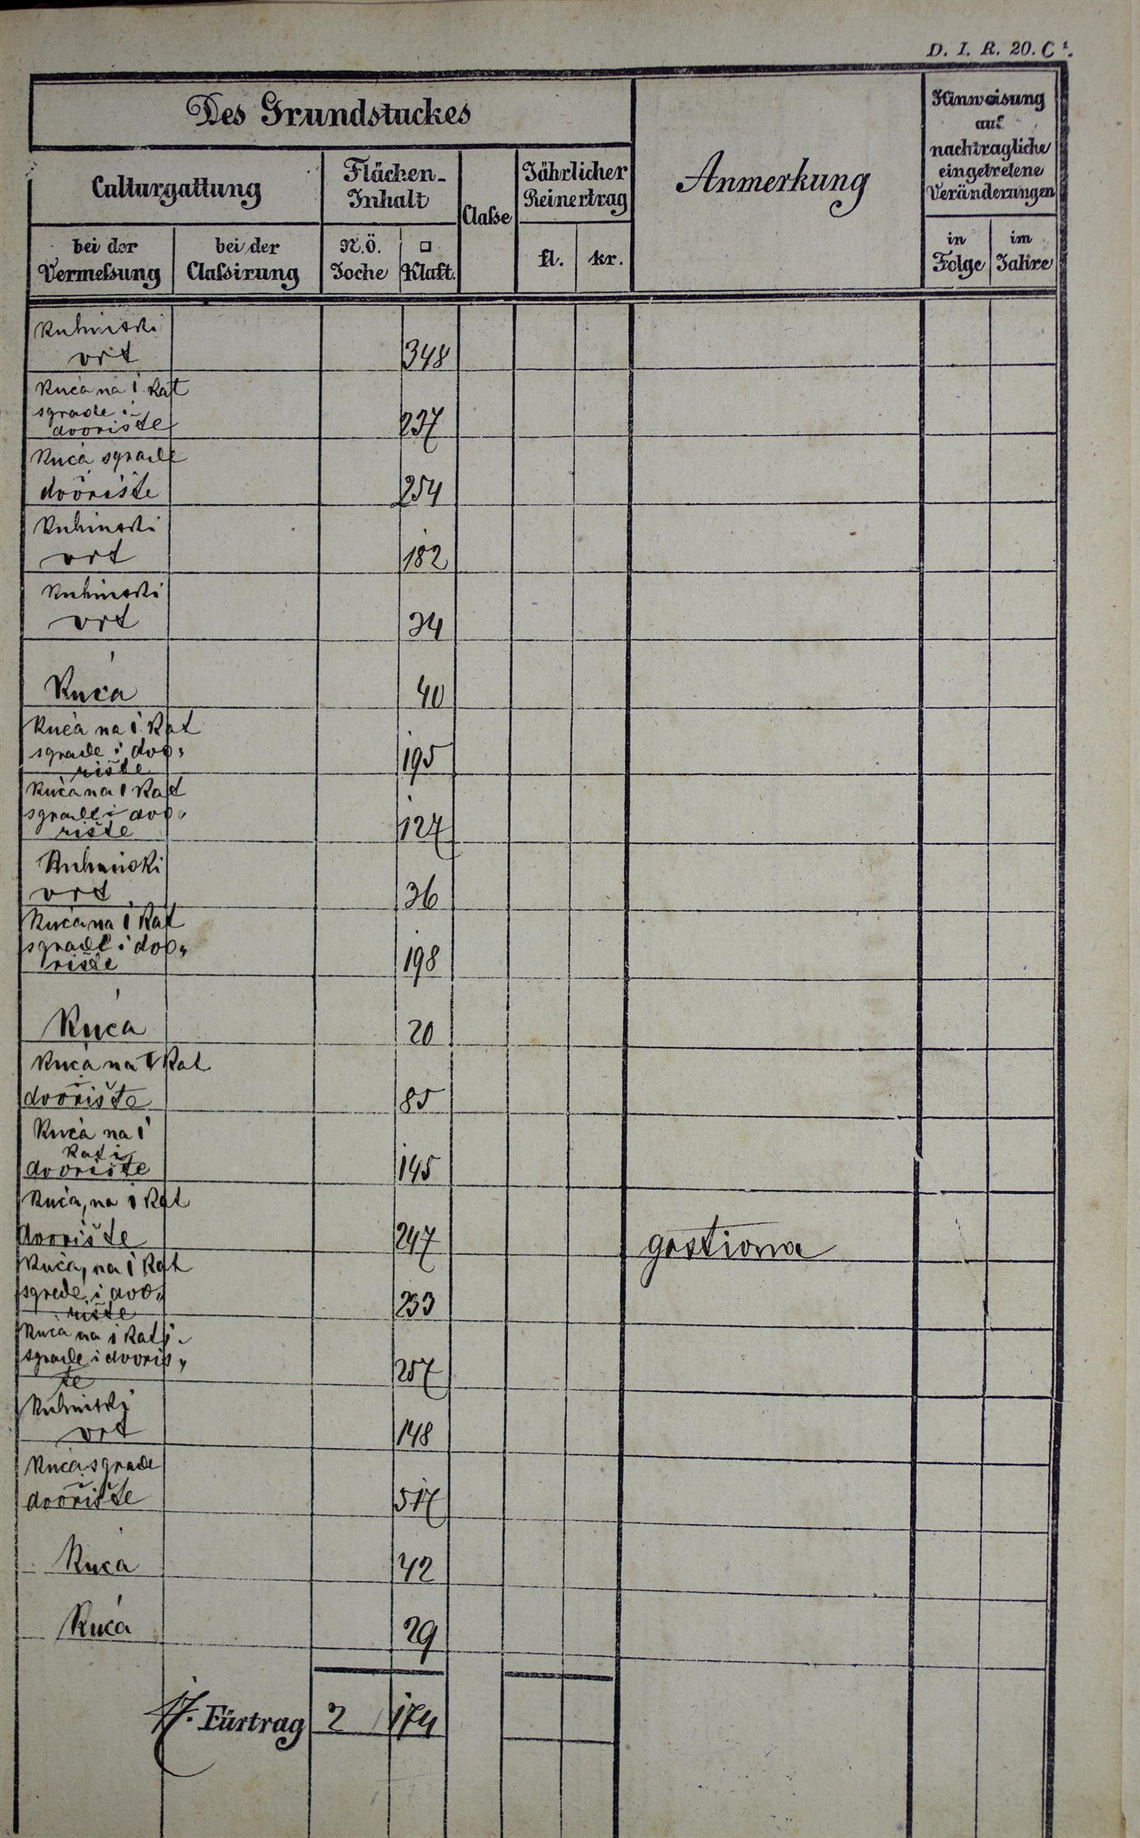 D. I. R. 20. C¹.
Des Grundstückes
Anmerkung
Hinweisung
auf
nachträgliche
eingetretene
Veränderungen
Culturgattung
Flächen-
Inhalt
Claße
Jährlicher
Reinertrag
bei der
Vermeßung
bei der
Claßirung
N.Ö.
Joche
□
Klaft.
fl.
kr.
in
Folge
im
Jahre
Kuhinski
vrt 348
Kuća na i kat
sgrade i
dvorište 237
Kuća sgrade
dvorište 254
Kuhinski
vrt 182
Kuhinski
vrt 34
Kuća 40
Kuća na i kat
sgrade i dvo„
rište 195
Kuća na i kat
sgrade i dvo„
rište 127
Kuhinski
vrt 36
Kuća na i kat
sgrade i dvo„
rište 198
Kuća 20
Kuća na i kat
dvorište 85
Kuća na i
kat i
dvorište 145
Kuća, na i kat
dvorište 247 gostiona
Kuća, na i kat
sgrede i dvo„
rište 233
Kuća na i kat i
sgrade i dvoriš„
te 257
Kuhinski
vrt 148
Kuća sgrade
dvorište 517
Kuća 42
Kuća 29
17. Fürtrag 2 174